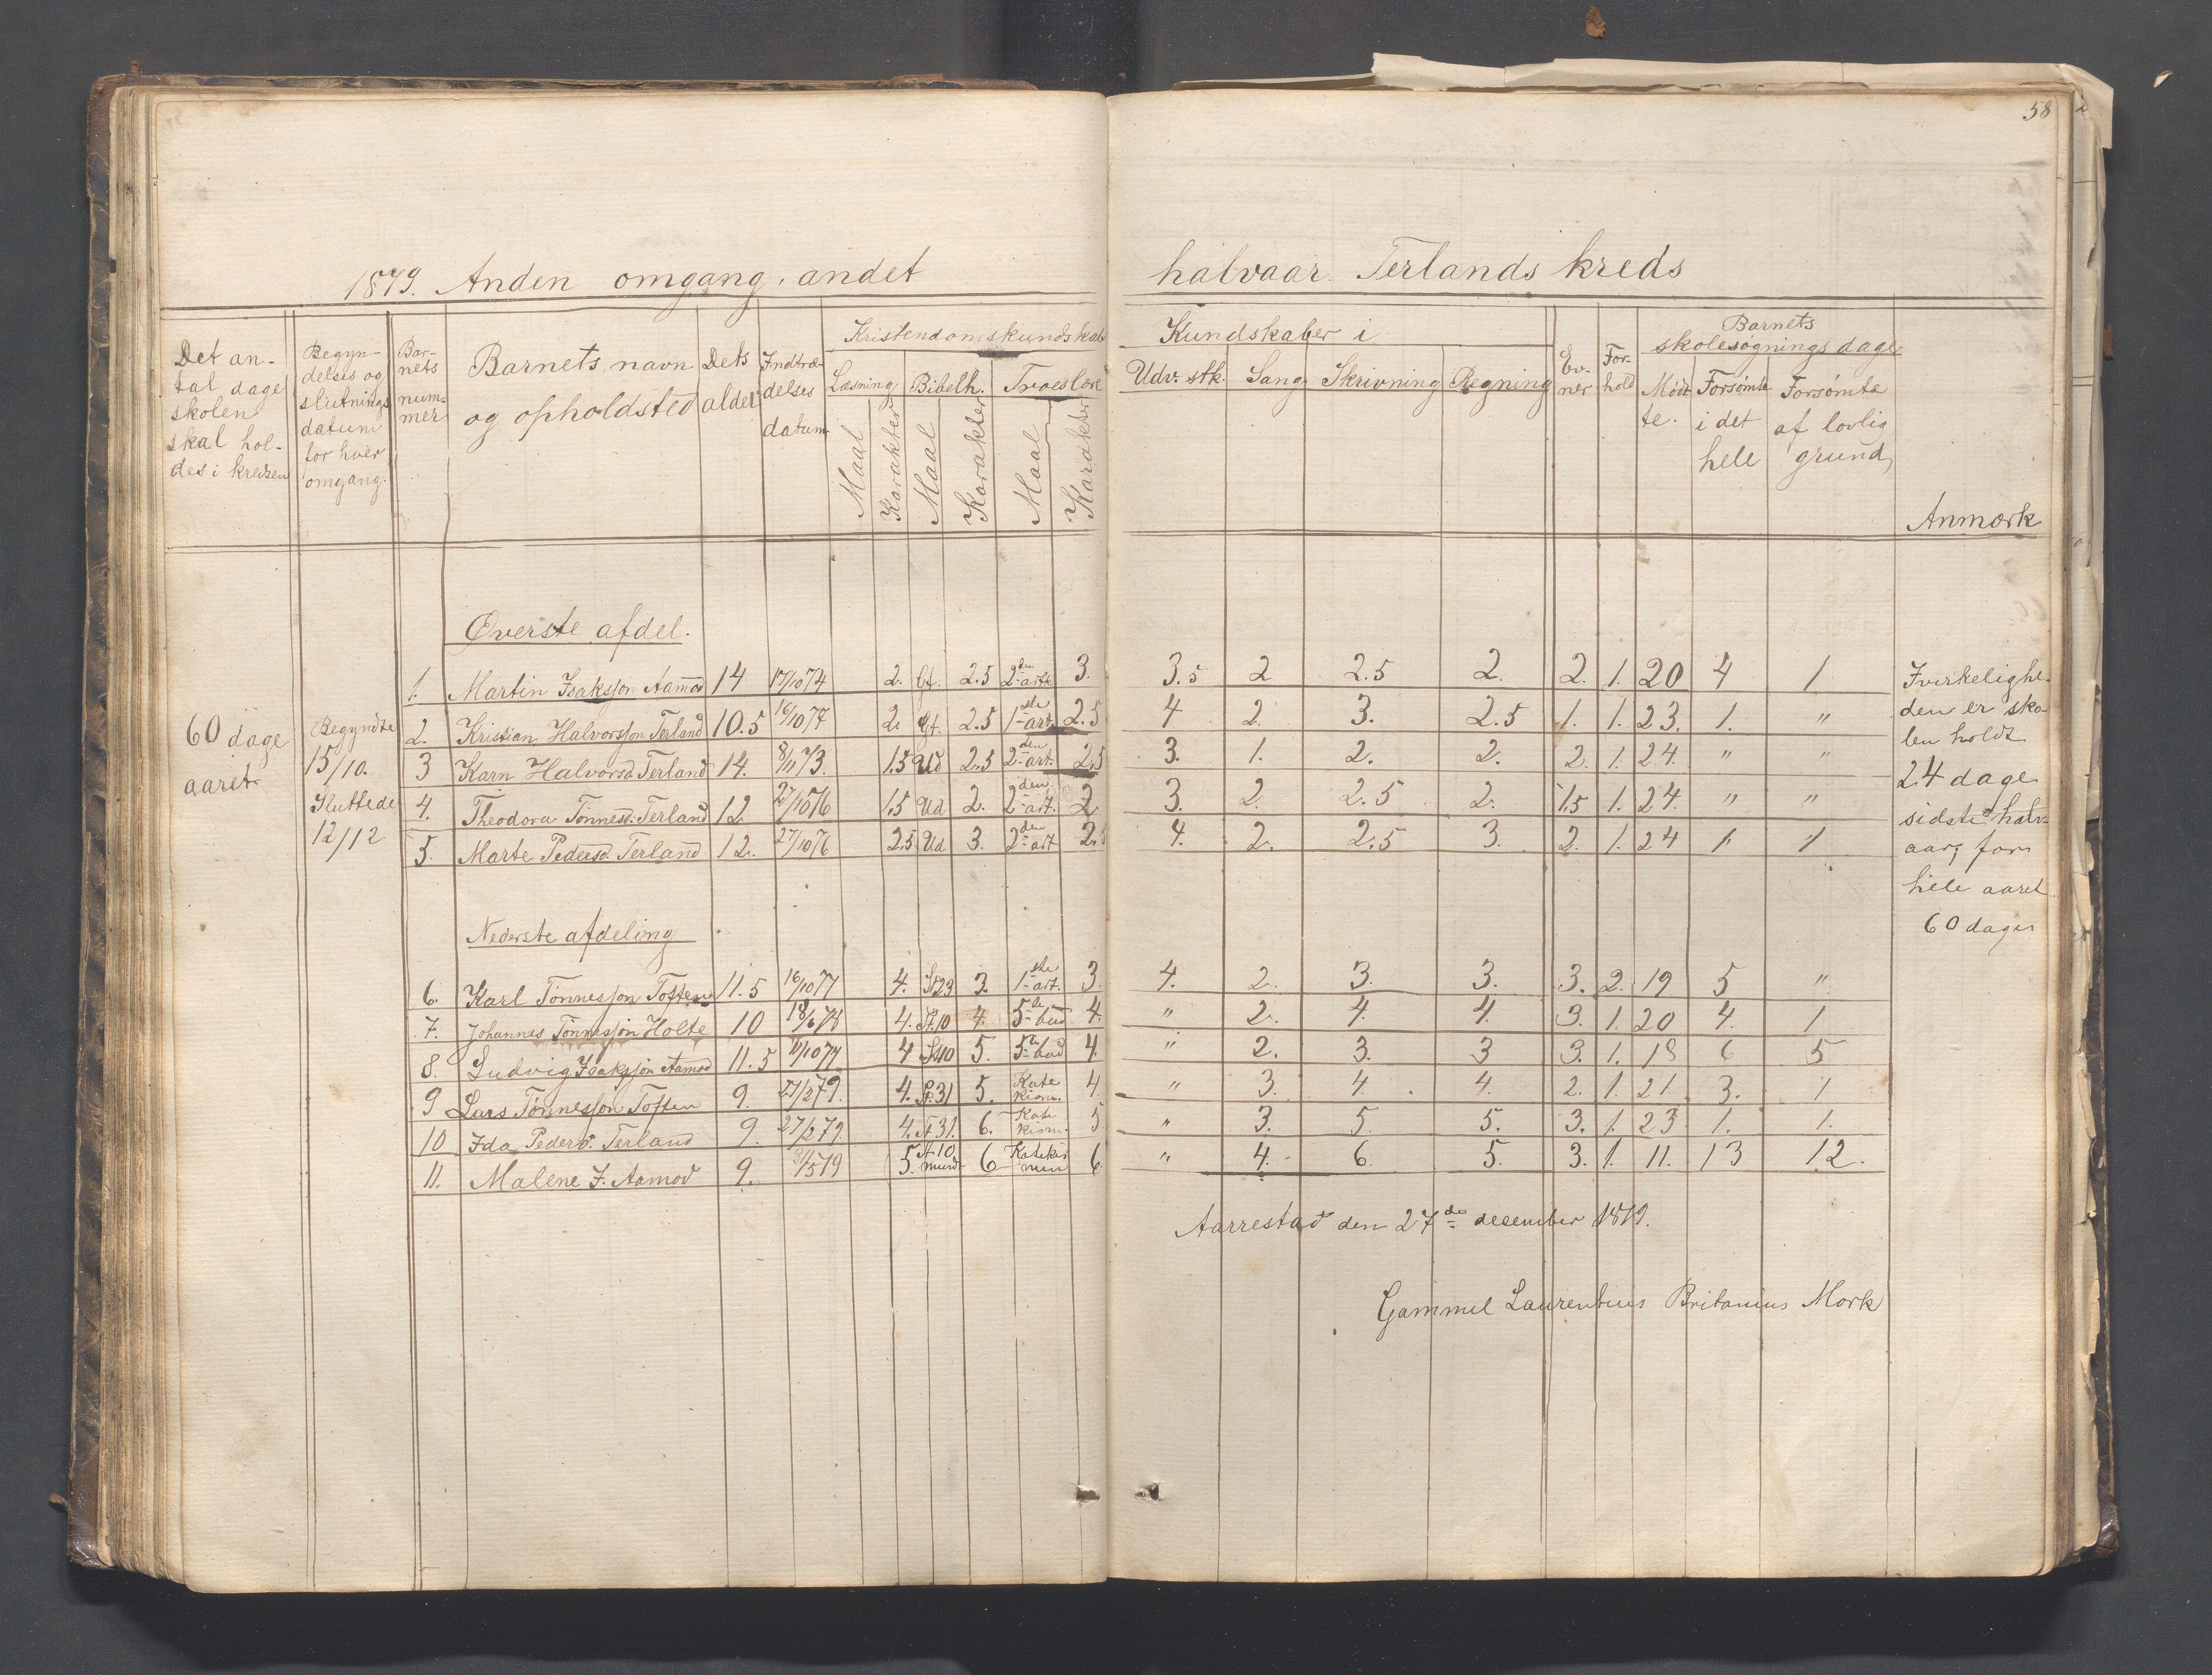 58
1879. Anden omgang, andet halvaar. Terlands kreds
Det an-
tal dage
skolen
skal hol-
des i kredsen
Begyn-
delses og
slutnings
datum
for hver
omgang.
Bar-
nets
num-
mer
Barnets navn
og opholdsted
Dets
alder
Indtræ-
delses
datum
Kristendomskundskab
Læsning Bibelh. Troeslære
Maal Karakter Maal Karakter Maal Karakter
Kundskaber i
Udv. stk. Sang Skrivning Regning
Ev-
ner
For-
hold
Barnets
skolesøgnings dage
Mødt
te.
Forsømte
i det
hele
Forsømte
af lovlig
grund
Anmærk
Øverste afdel.
1. Martin Isaksjon Aamod 14 17/10 74 2. Gf. 2.5 2den art. 3. 3.5 2 2.5 2. 2. 1. 20 4 1
2. Kristian Halvorsjon Terland 10.5 16/10 77 2. Gf. 2.5 1ste art. 2.5 4 2. 3. 2.5 1. 1. 23. 1. "
3 Karn Halvorsd. Terland 14. 8/11 73. 1.5 Ud 2.5 2den art. 2.5 3. 1. 2. 2. 2. 1. 24. " "
4. Theodora Tønnesd. Terland 12 27/10 76 1.5 Ud 2. 2den art. 2 3. 2. 2.5 2. 1.5 1. 24. " "
5. Marte Pedersd. Terland 12. 27/10 76 2.5 Ud 3. 2den art 2.5 4. 2. 2.5 3. 2. 1. 24 " "
60 dage
aaret
Begyndte
15/10.
Sluttede
12/12
Ivirkelighe-
den er sko-
len holdt
24 dage
sidste halv-
aar, for
hele aaret
60 dage
Nederste afdeling
6. Karl Tønnesjon Toften 11.5 16/10 77 4. St 29 3. 1ste art. 3. 4. 2. 3. 3. 3. 2. 19 5 "
7. Johannes Tønnesjon Holte 10 18/6 78 4. St. 10 4. 5te bud 4. " 2. 4. 4. 3. 1. 20 4. 1
8. Ludvig Isaksjon Aamod 11.5 /10 77 4 St 10 5. 5te bud 4. " 2. 3. 3 3. 1. 18 6 5
9 Lars Tønnesjon Toften 9. 27/2 79. 4. St. 31 5. Kate kism. 4 " 3. 4. 4. 2. 1. 21 3. 1
10 Ida Pedersd. Terland 9. 27/2 79. 4. St 31. 6. Kate kism. 5 " 3. 5. 5. 3. 1. 23 1. 1.
11. Malene I. Aamod 9. 5 79 5. St. 10 6 Katekis mus 6. " 4. 6. 5. 3. 1. 11. 13 12.
Aarrestad den 27de december 1879.
Gammel Laurentius Britanius Mork